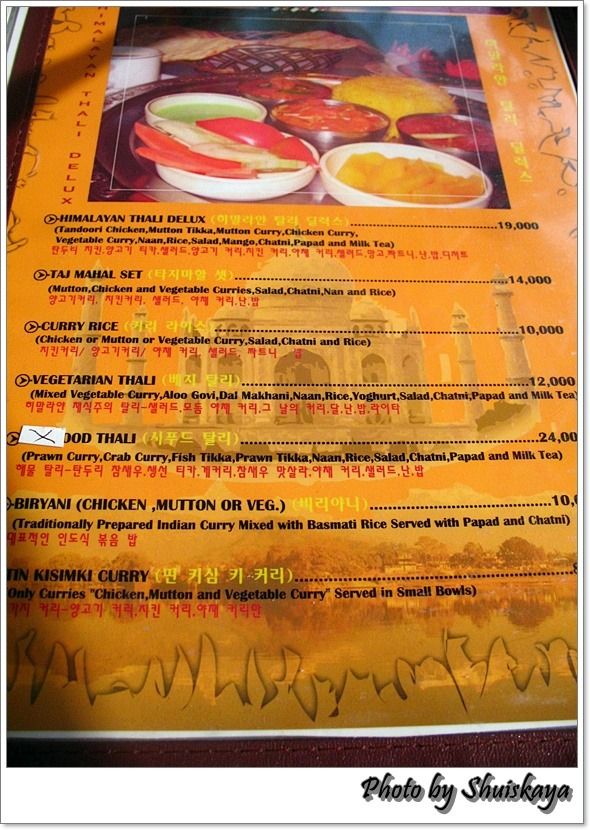 HIMALAYAN THALI DELUX
히말라얀 탈리 딜럭스
HIMALAYAN THALI DELUX (히말라얀 탈리 딜럭스)...19,000
(Tandoori Chicken,Mutton Tikka,Mutton Curry,Chicken Curry,
Vegetable Curry,Naan,Rice,Salad,Mango,Chatni,Papad and Milk Tea)
탄두리 치킨,양고기 티카,샐러드,양고기 커리,치킨 커리,야채 커리,샐러드,망고,짜트니,난,밥,디저트
TAJ MAHAL SET (타지마할 셋)...14,000
(Mutton,Chicken and Vegetable Curries,Salad,Chatni,Nan and Rice)
양고기커리, 치킨커리, 샐러드, 야채 커리,난,밥
CURRY RICE (커리 라이스)...10,000
(Chicken or Mutton or Vegetable Curry,Salad,Chatni and Rice)
치킨커리/ 양고기커리/ 야채 커리, 샐러드, 짜트니 밥
VEGETARIAN THALI (베지 탈리)...12,000
(Mixed Vegetable Curry,Aloo Govi,Dal Makhani,Naan,Rice,Yoghurt,Salad,Chatni,Papad and Milk Tea)
히말라얀 채식주의 탈리-샐러드,모듬 야채 커리,그 날의 커리,달,난,밥,라이타
X OOD THALI (시푸드 탈리)...24,00
(Prawn Curry,Crab Curry,Fish Tikka,Prawn Tikka,Naan,Rice,Salad,Chatni,Papad and Milk Tea)
해물 탈리-탄두리 참새우,생선 티카,게커리,참새우 맛살라,야채 커리,샐러드,난,밥
BIRYANI (CHICKEN ,MUTTON OR VEG.) (비리아니)...10,0
(Traditionally Prepared Indian Curry Mixed with Basmati Rice Served with Papad and Chatni)
대표적인 인도식 볶음 밥
TIN KISIMKI CURRY (띤 키심 키 커리)...8
Only Curries "Chicken,Mutton and Vegetable Curry" Served in Small Bowls)
가지 커리-양고기 커리,치킨 커리,야채 커리만
Photo by Shuiskaya